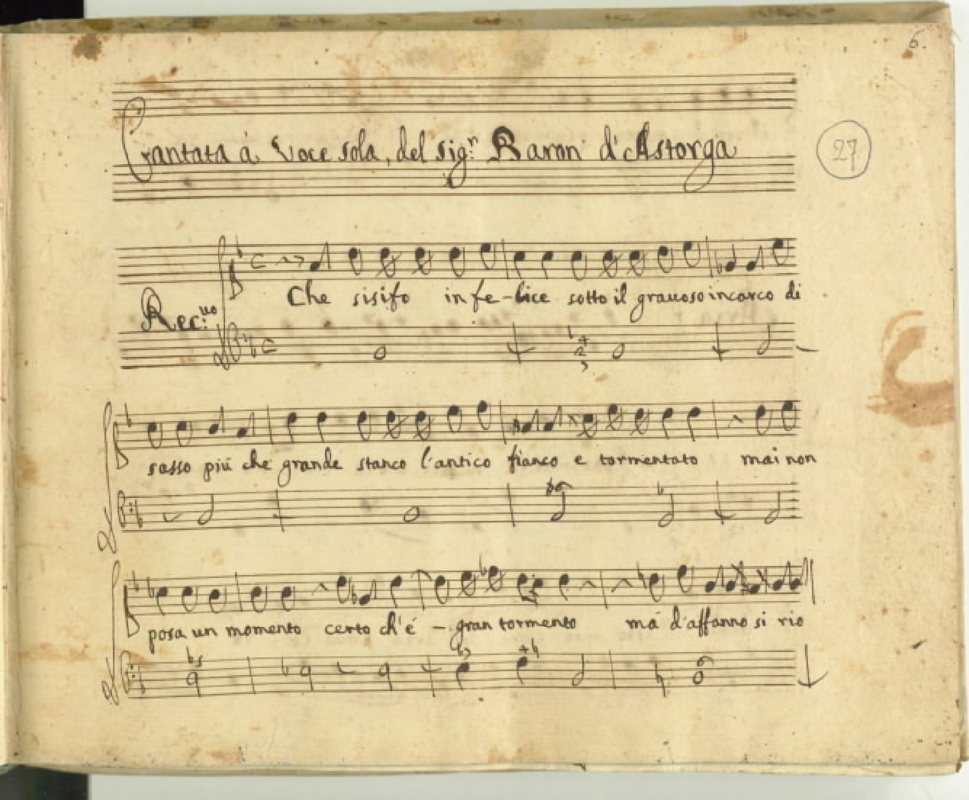 6.
Cantata à Voce sola, del sig.n Baron d'Astorga
27
Rec.vo
Che sisifo infe-lice sotto il grauoso incarco di
sasso più che grande stanco l'antico fianco e tormentato mai non
posa un momento certo ch'é - gran tormento má d'affanno si rio